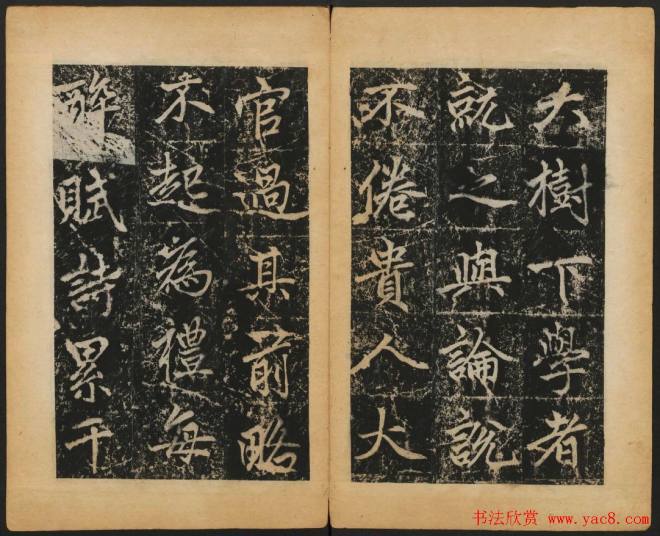 大樹下學者
就之與論說
不倦貴人大
官過其前略
不起為禮每
醉賦詩累千
书法欣赏 www.yac8.com